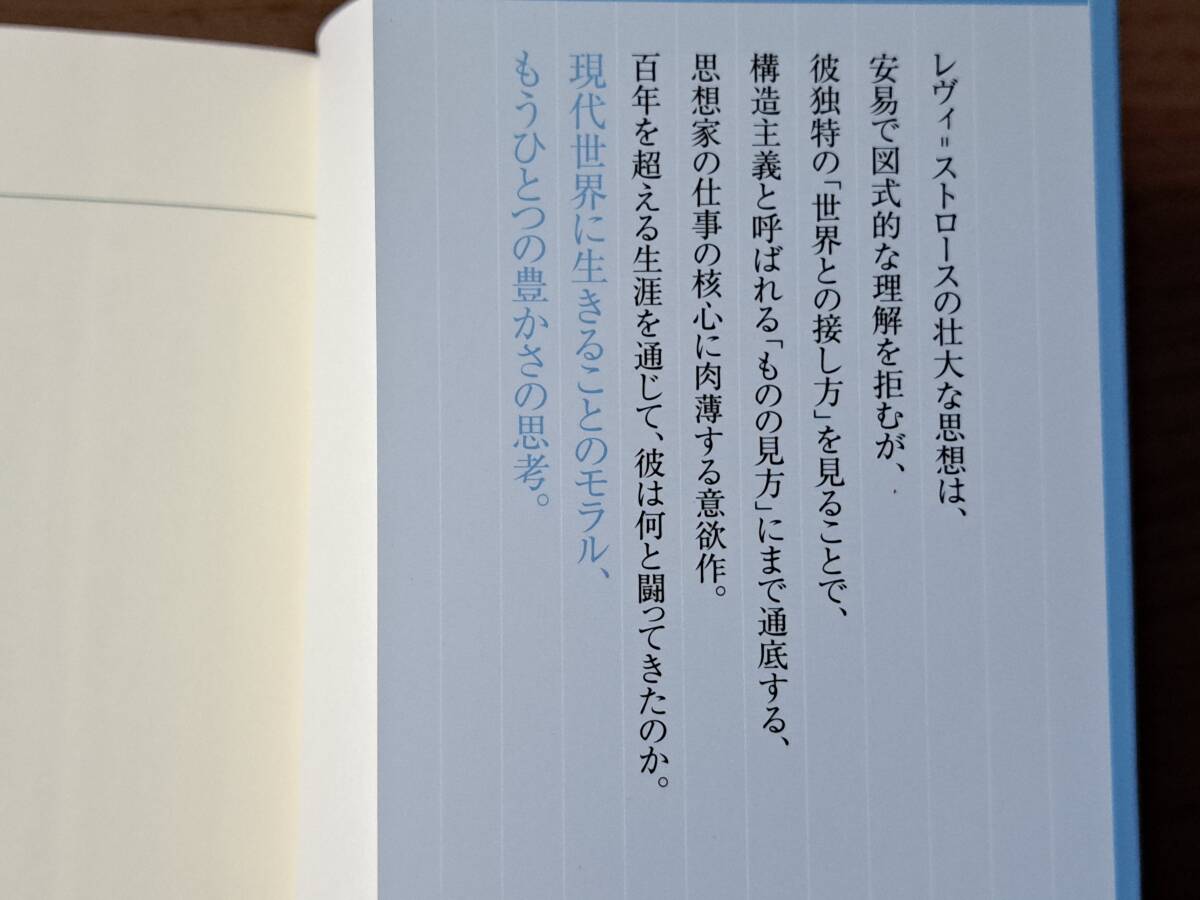 レヴィ=ストロースの壮大な思想は、
安易で図式的な理解を拒むが、
彼独特の「世界との接し方」を見ることで、
構造主義と呼ばれる「ものの見方」にまで通底する、
思想家の仕事の核心に肉薄する意欲作。
百年を超える生涯を通じて、彼は何と闘ってきたのか。
現代世界に生きることのモラル、
もうひとつの豊かさの思考。